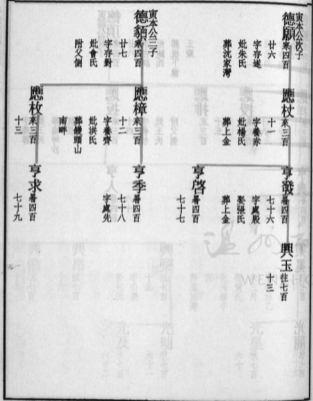 寅本公次子
德顯來四百
廿六
字存遂
妣朱氏
葬沈家灣
應杖來三百
十一
字養赤
妣楊氏
葬上金
亨
暑四百
七十六
字處殷
娶張氏
葬上金
興玉往七百
十三
亨啓暑四百
七十七
寅本公三子
德頴來四百
廿七
字存對
妣會氏
附父側
應樟來三百
十二
字養齊
妣洪氏
葬饅頭山
南畔
亨季暑四百
七十八
字處先
應枚來三百
十三
亨求暑四百
七十九